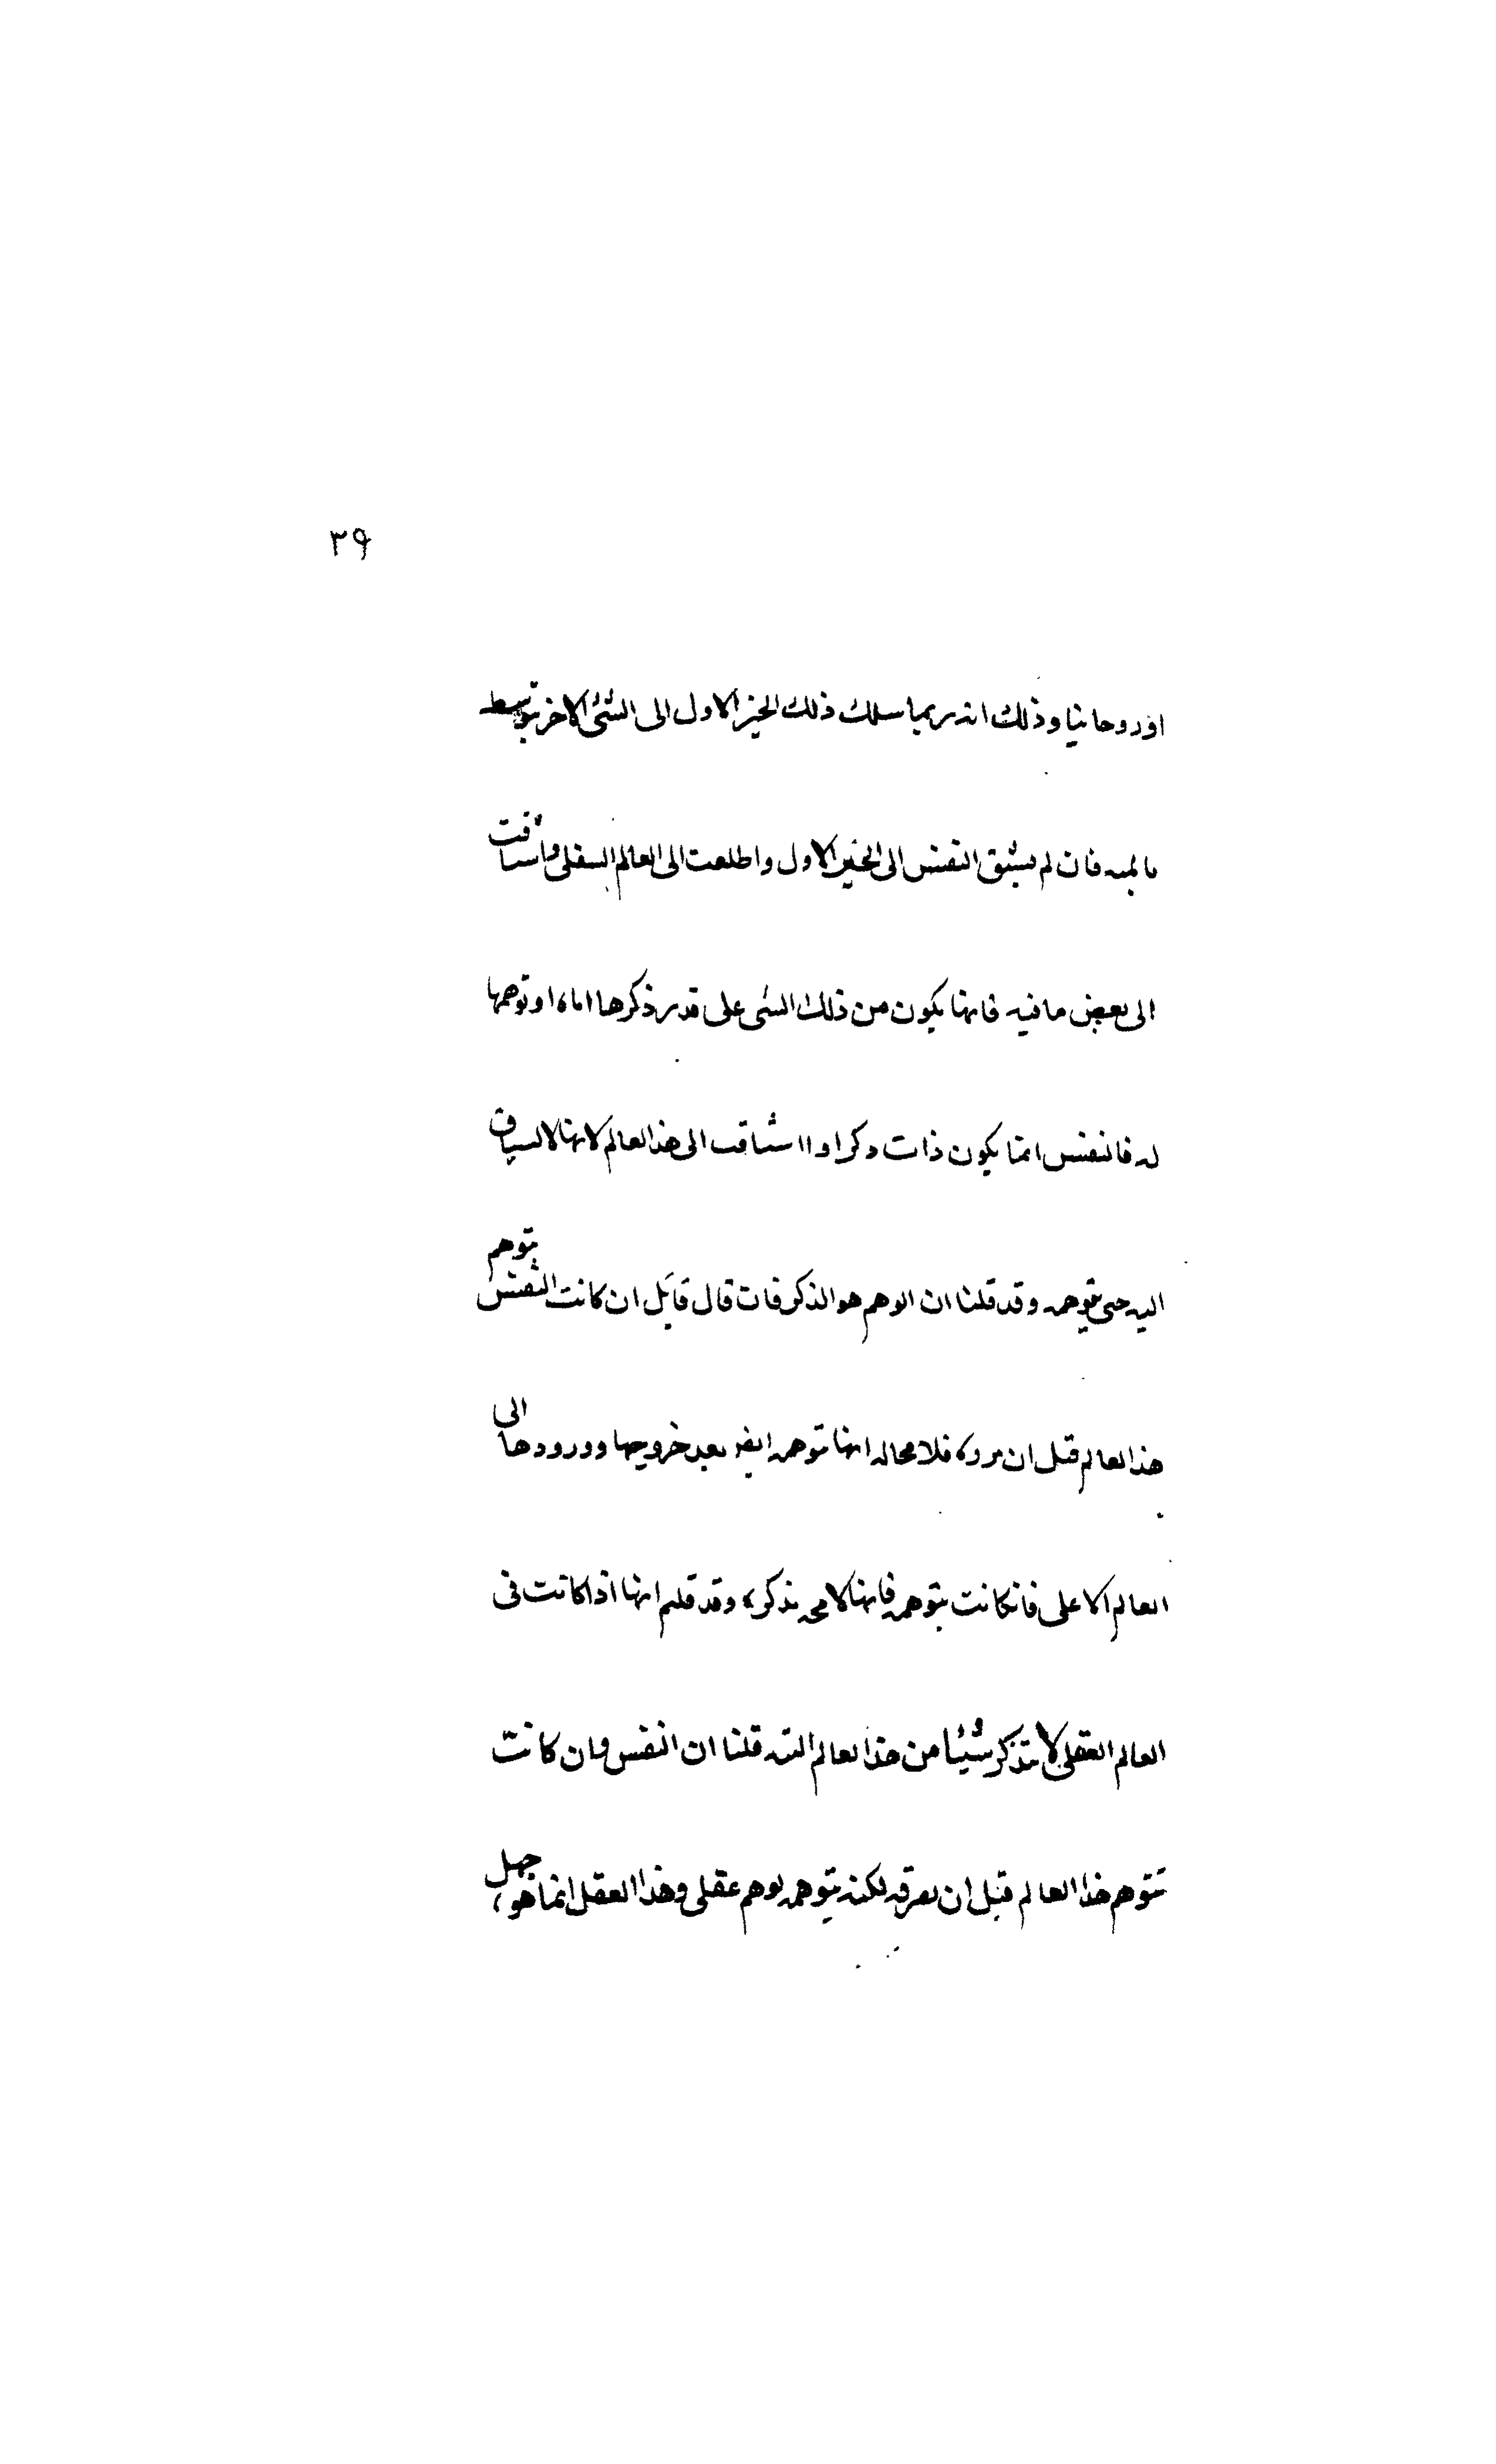 ٣٩
اوروحانيا وذلك انه ربما سلك ذلك الخير الاول الى الشئ الاخر بتوسط
فان لم يشتق النفس الى الخير الاول واطلعت الى العالم السفلى واشتاقت
الى بعض ما فيه فانها يكون من ذلك الشى على قدر ذكرها اياه او توهمها
له فالنفس انما يكون ذات ذكر اشتاقت الى هذا العالم لانها لا تشتاق
اليه حتى يتوهمه وقد قلنا ان الوهم هو الذكر فان قال قايل ان كانت النفس يتوهم
هذا العالم قبل ان يرده فلا محاله انها تتوهمه ايضا بعد خروجها وورودها الى
العالم الاعلى فانكانت يتوهمه فانها لا محه يذكره وقد قلتم انها اذا كانت فى
العالم العقلى لا يتذكر شيئا من هذا العالم البته قلنا ان النفس وان كانت
تتوهم هذا العالم قبل ان لكنه يتوهمه بوهم عقلى وهذا العقل انما هو جهل